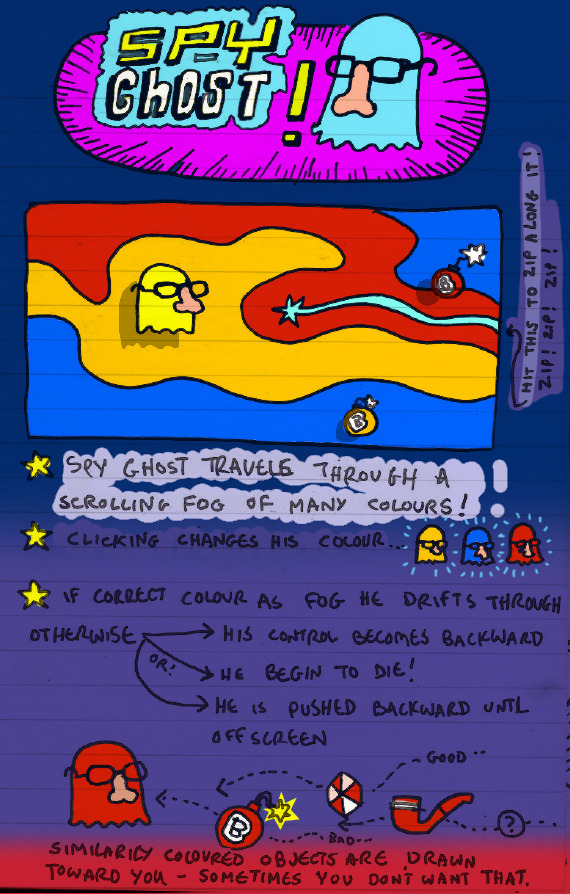 SPY
GHOST!
HIT THIS TO ZIP ALONG IT!
ZIP! ZIP! ZIP!
B
B
SPY GHOST TRAVELS THROUGH A
SCROLLING FOG OF MANY COLOURS!
CLICKING CHANGES HIS COLOUR...
IF CORRECT COLOUR AS FOG HE DRIFTS THROUGH
OTHERWISE HIS CONTROL BECOMES BACKWARD
OR! HE BEGIN TO DIE!
HE IS PUSHED BACKWARD UNTL
OFF SCREEN
GOOD
B
?
BAD
SIMILARILY COLOURED OBJECTS ARE DRAWN
TOWARD YOU - SOMETIMES YOU DON'T WANT THAT.